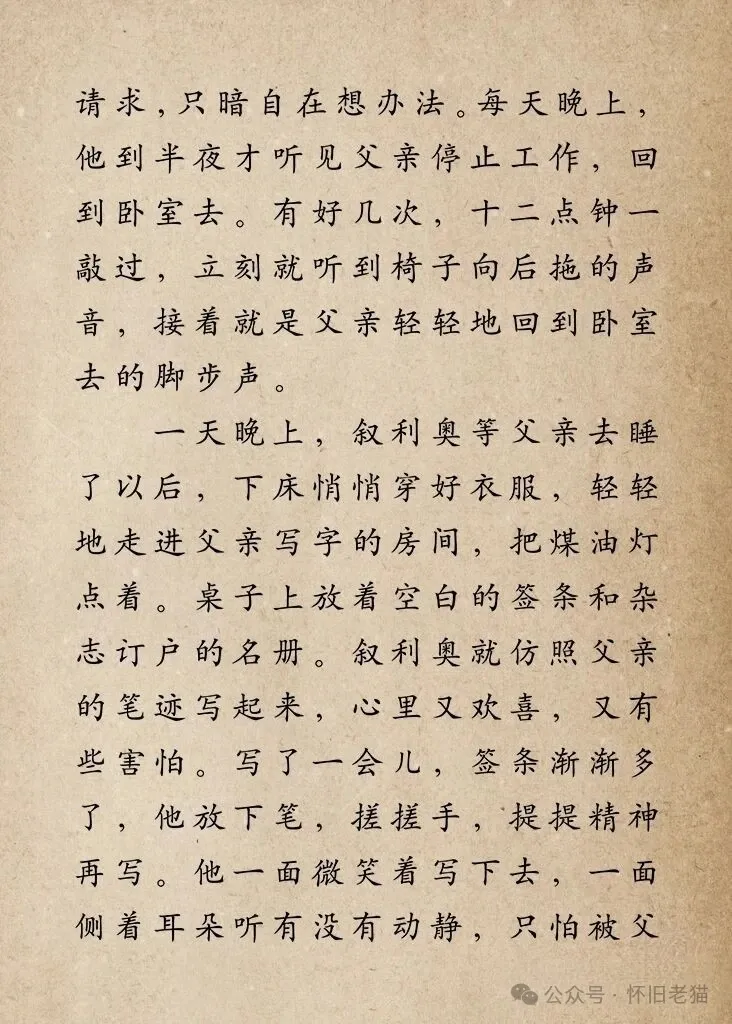 请求,只暗自在想办法。每天晚上,
他到半夜才听见父亲停止工作,回
到卧室去。有好几次,十二点钟一
敲过,立刻就听到椅子向后拖的声
音,接着就是父亲轻轻地回到卧室
去的脚步声。
一天晚上,叙利奥等父亲去睡
了以后,下床悄悄穿好衣服,轻轻
地走进父亲写字的房间,把煤油灯
点着。桌子上放着空白的签条和杂
志订户的名册。叙利奥就仿照父亲
的笔迹写起来,心里又欢喜,又有
些害怕。写了一会儿,签条渐渐多
了,他放下笔,搓搓手,提提精神
再写。他一面微笑着写下去,一面
侧着耳朵听有没有动静,只怕被父
公众号·怀旧老猫